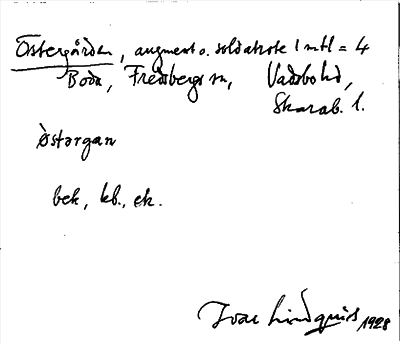 Östergården, augment o. soldatrote 1 mtl = 4
Boda, Fredsbergs sn, Vadsbo hd,
Skarab. l.
östərgan
bek, kb., ek.
Ivar Lindquist 1928